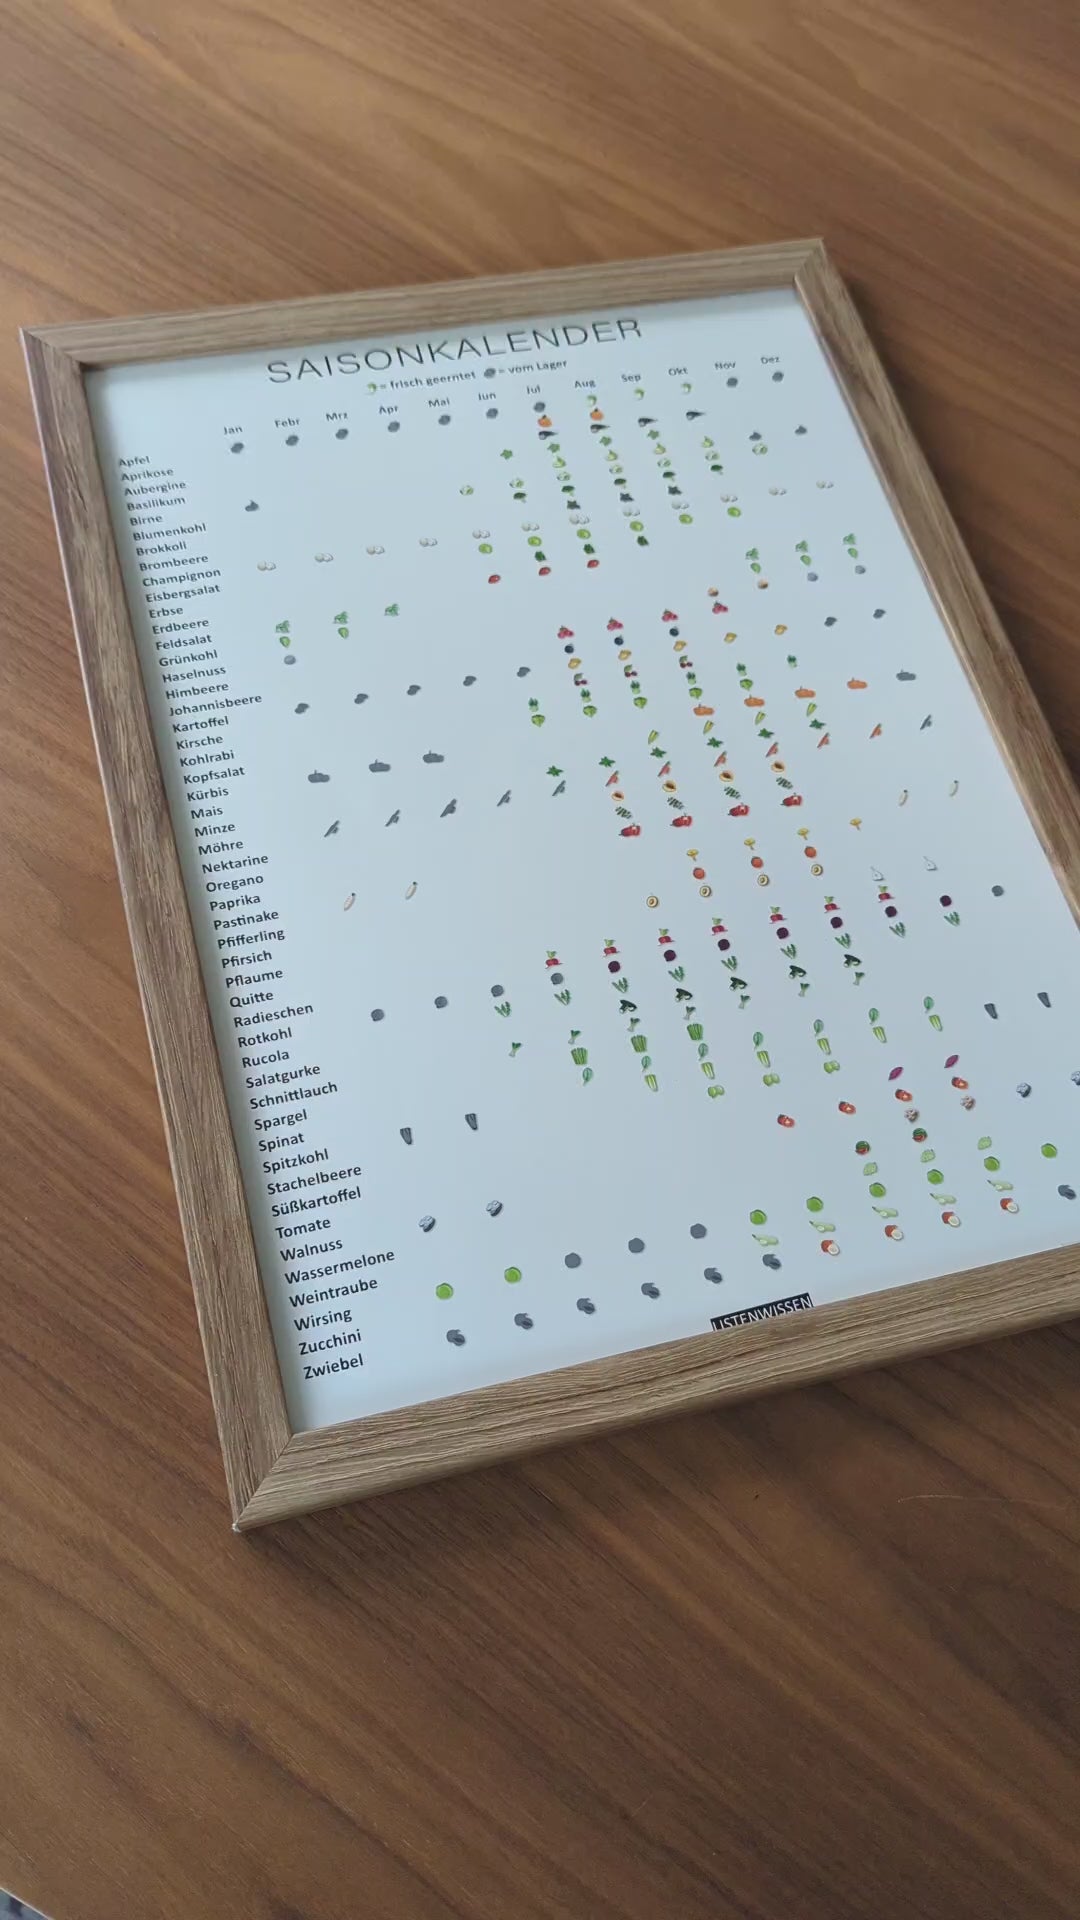 SAISONKALENDER
= frisch geerntet = vom Lager
Jan Febr Mrz Apr Mai Jun Jul Aug Sep Okt Nov Dez
Apfel
Aprikose
Aubergine
Basilikum
Birne
Blumenkohl
Brokkoli
Brombeere
Champignon
Eisbergsalat
Erbse
Erdbeere
Feldsalat
Grünkohl
Haselnuss
Himbeere
Johannisbeere
Kartoffel
Kirsche
Kohlrabi
Kopfsalat
Kürbis
Mais
Minze
Möhre
Nektarine
Oregano
Paprika
Pastinake
Pfifferling
Pfirsich
Pflaume
Quitte
Radieschen
Rotkohl
Rucola
Salatgurke
Schnittlauch
Spargel
Spinat
Spitzkohl
Stachelbeere
Süßkartoffel
Tomate
Walnuss
Wassermelone
Weintraube
Wirsing
Zucchini
Zwiebel
LISTENWISSEN